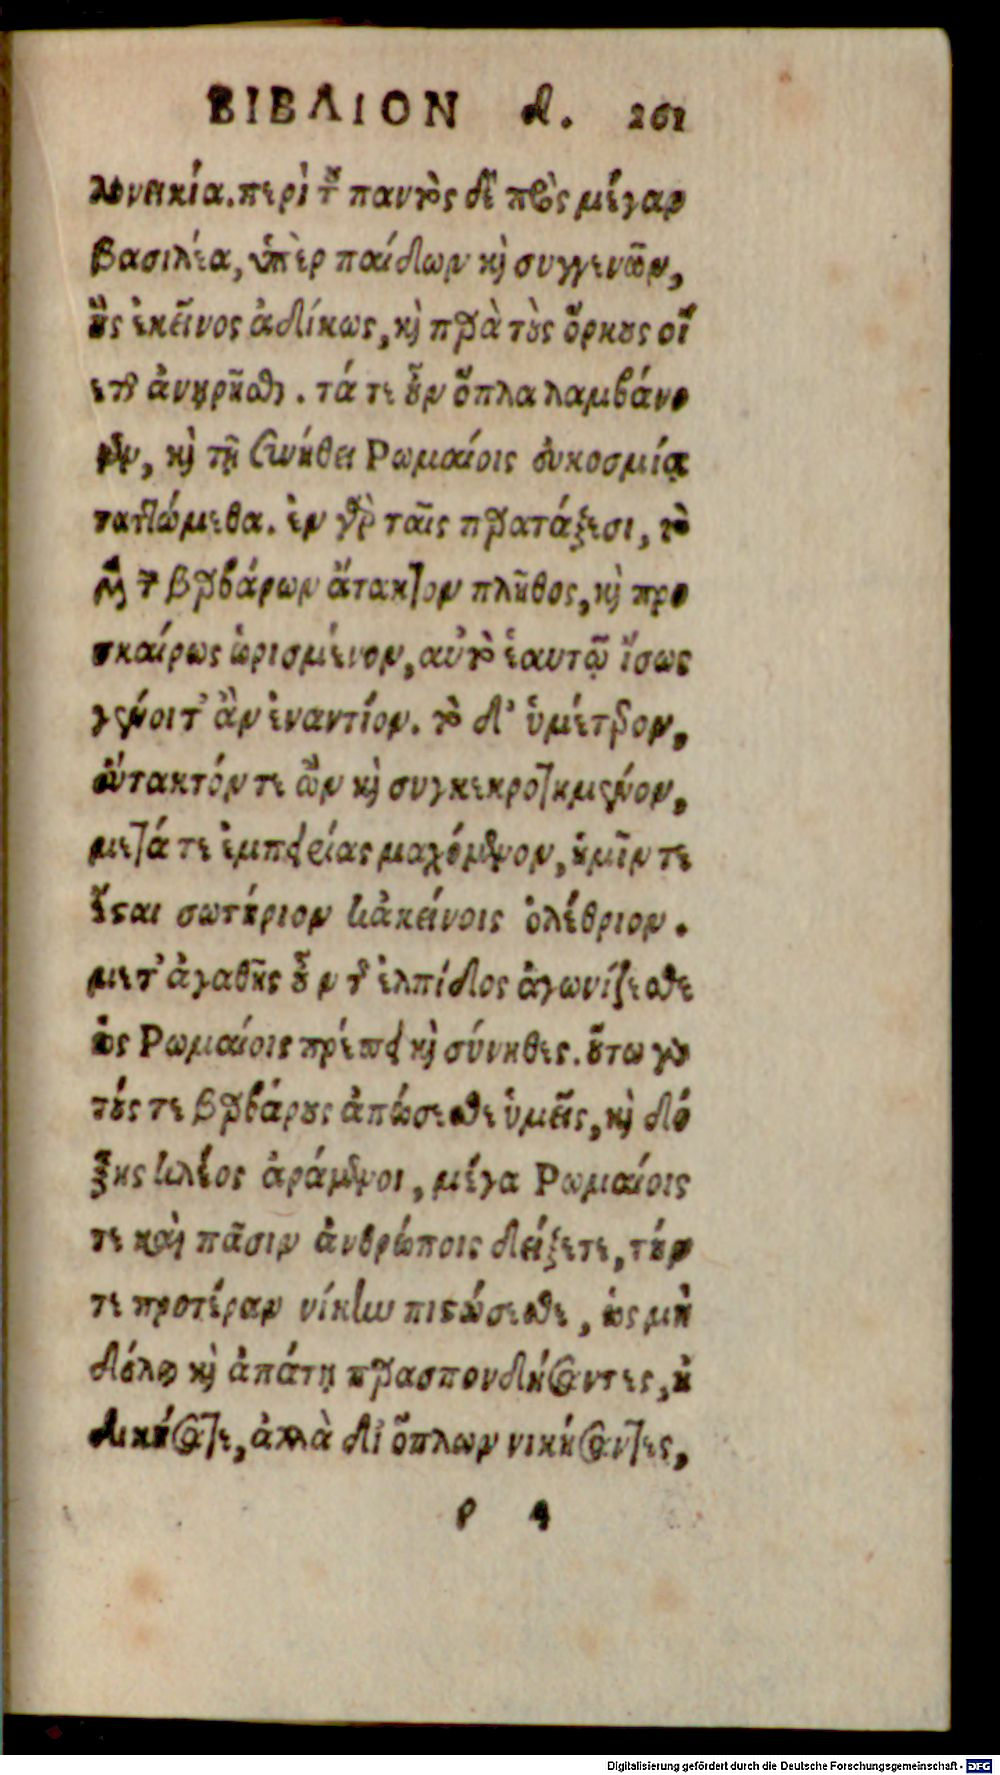 ΒΙΒΛΙΟΝ δ. 261
λονεικία. περὶ τοῦ παντὸς δὲ πρὸς μέγαν
βασιλέα, ὑπὲρ παίδων καὶ συγγενῶν,
οὓς ἐκεῖνος ἀδίκως, καὶ παρὰ τοὺς ὅρκους οἵ
ετο ἀνῃρῆσθαι. τά τε οὖν ὅπλα λαμβάνο
μεν, καὶ τῇ συνήθει Ρωμαίοις εὐκοσμίᾳ
ταττώμεθα. ἐν γὰρ ταῖς παρατάξεσι, τὸ
μὲν τῶν βαρβάρων ἄτακτον πλῆθος, καὶ προ
σκαίρως ὡρισμένον, αὐτὸ ἑαυτῷ ἴσως
γένοιτ' ἂν ἐναντίον. τὸ δ' ὑμέτερον,
εὔτακτόν τε ὂν καὶ συγκεκροτημένον,
μετά τε ἐμπειρίας μαχόμενον, ἡμῖν τε
ἔσται σωτήριον κἀκείνοις ὀλέθριον.
μετ' ἀγαθῆς οὖν τῆς ἐλπίδος ἀγωνίζεσθε
ὡς Ρωμαίοις πρέπει καὶ σύνηθες. οὕτω γὰρ
τούς τε βαρβάρους ἀπώσεσθε ὑμεῖς, καὶ δό
ξης κλέος ἀράμενοι, μέγα Ρωμαίοις
τε καὶ πᾶσιν ἀνθρώποις δείξετε, τήν
τε προτέραν νίκην πιστώσεσθε, ὡς μὴ
δόλῳ καὶ ἀπάτῃ παρασπονδήσαντες, ἠ
δικήσατε, ἀλλὰ δι' ὅπλων νικήσαντες,
ρ 4
Digitalisierung gefördert durch die Deutsche Forschungsgemeinschaft - DFG